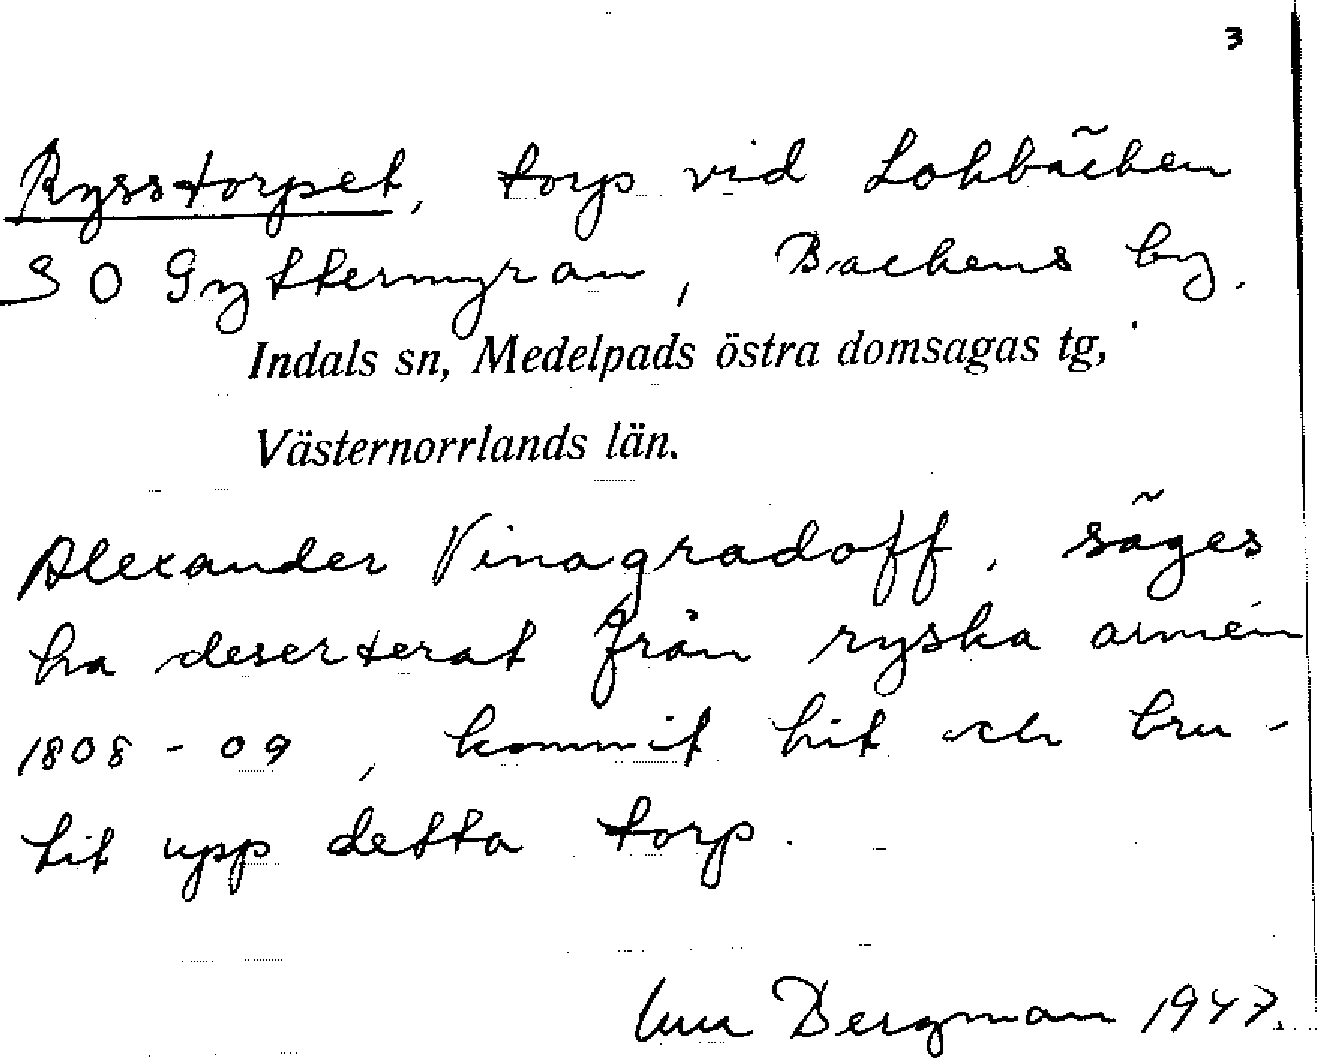 3
Rysstorpet, torp vid Lohbäcken
SO Gyttermyran, Backens by.
Indals sn, Medelpads östra domsagas tg,
Västernorrlands län.
Alexander Vinagradoff, säges
ha deserterat från ryska armén
1808-09, kommit hit och bru-
tit upp detta torp.
Bergman 1947.